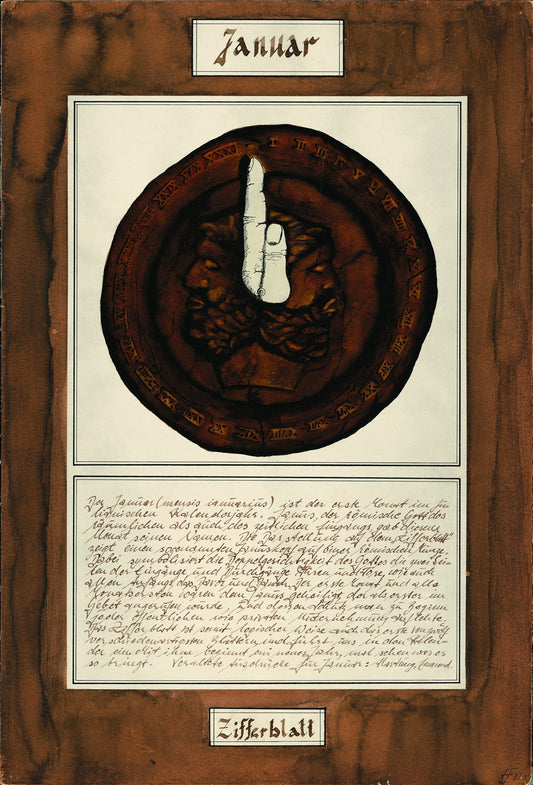 Januar
Der Januar (mensis ianuarius) ist der erste Monat im ju
lianischen Kalenderjahr. Janus, der römische Gott des
räumlichen als auch des zeitlichen Eingangs, gab diesem
Monat seinen Namen. Die Darstellung auf dem "Zifferblatt"
zeigt einen sogenannten Januskopf auf einer römischen Münze.
Dabei symbolisiert die Doppelgesichtigkeit des Gottes die zwei Sei-
ten der Eingänge und Durchgänge, Türen und Tore, wie auch
allen Anfangs das Davor und Danach. Der erste Monat und alle
Monatsersten waren dem Janus geheiligt, der als erster im
Gebet angerufen wurde. Und dessen man zu Beginn
jeder öffentlichen wie privaten Unternehmung
Das Zifferblatt ist somit logischer Weise auch das erste von zwölf
verschiedenartigsten Blättern und führt uns in den Kalen-
der ein. Mit ihm beginnt ein neues Jahr, und sehen was es
so bringt. Veraltete Ausdrücke für Januar: Hartung,
Zifferblatt